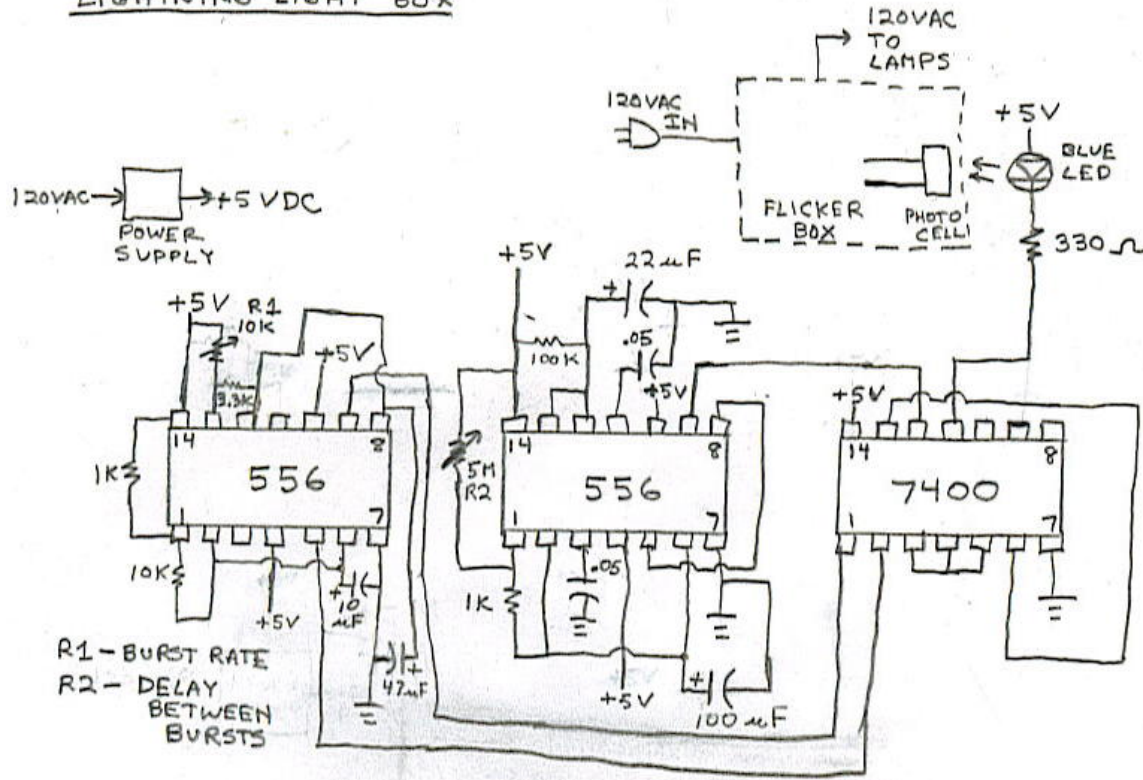 LIGHTNING LIGHT BOX
120VAC
TO
LAMPS
120VAC
IN
+5V
BLUE
LED
FLICKER
BOX
PHOTO
CELL
330 Ω
120VAC
+5 VDC
POWER
SUPPLY
+5V
R1
10K
3.3K
+5V
+5V
22 μF
+
100K
.05
+5V
+5V
14
8
556
1
7
1K
10K
+5V
+
10
μF
47μF
+
14
8
556
1
7
5M
R2
1K
.05
+5V
+
100 μF
14
8
7400
1
7
R1 - BURST RATE
R2 - DELAY
BETWEEN
BURSTS